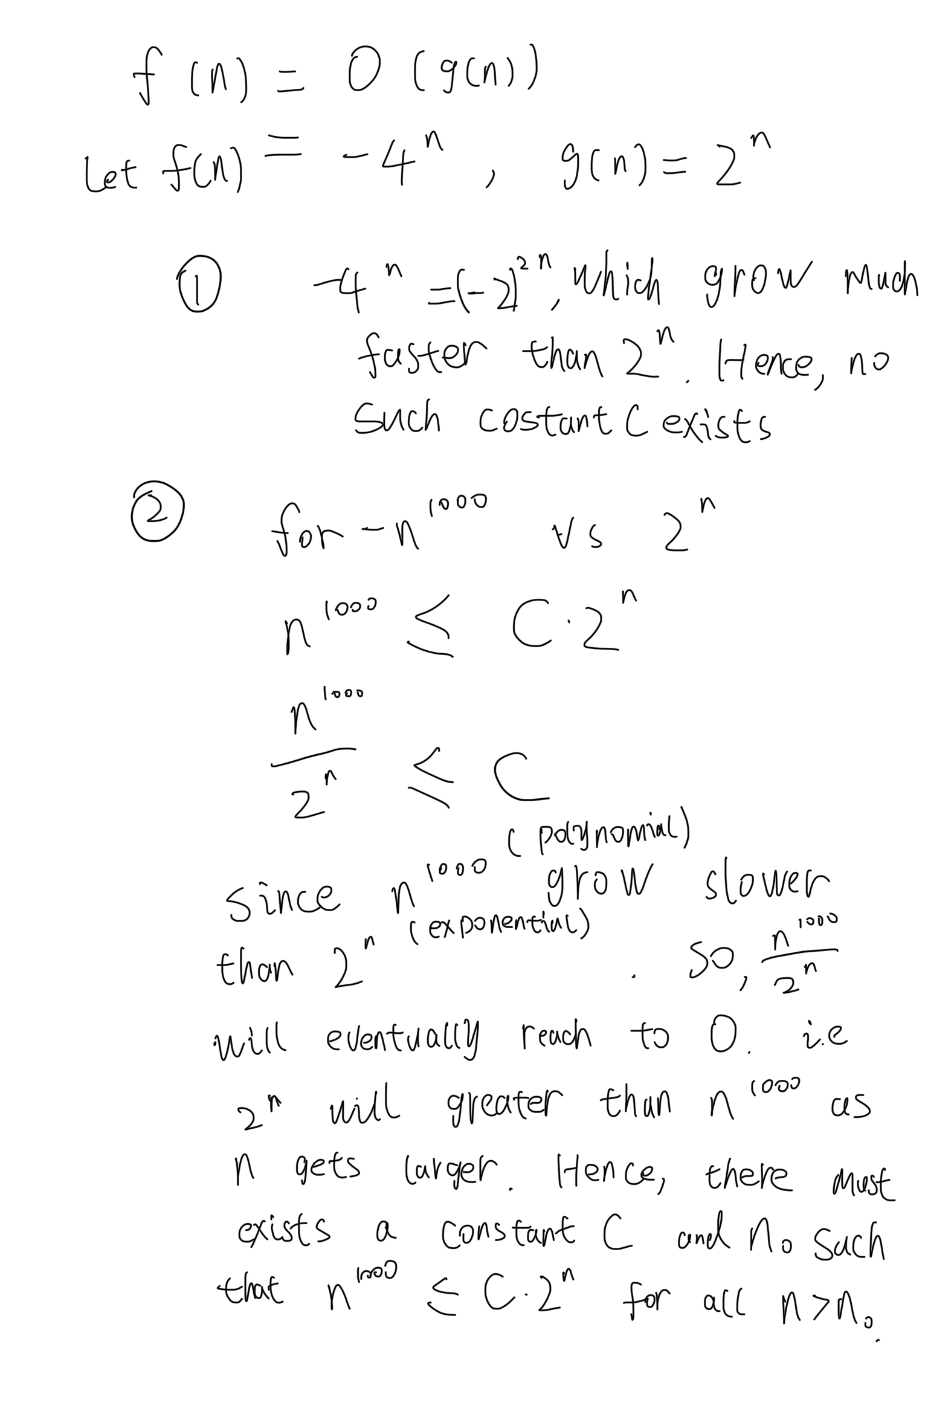 f(n) = O(g(n))
Let f(n) = -4^n, g(n) = 2^n
① -4^n = (-2)^{2n}, which grow much
faster than 2^n. Hence, no
such costant C exists
② for -n^{1000} vs 2^n
n^{1000} ≤ C·2^n
n^{1000}/2^n ≤ C
since n^{1000} (polynomial) grow slower
than 2^n (exponential). So, n^{1000}/2^n
will eventually reach to 0. i.e
2^n will greater than n^{1000} as
n gets larger. Hence, there must
exists a constant C and n₀ such
that n^{1000} ≤ C·2^n for all n>n₀.